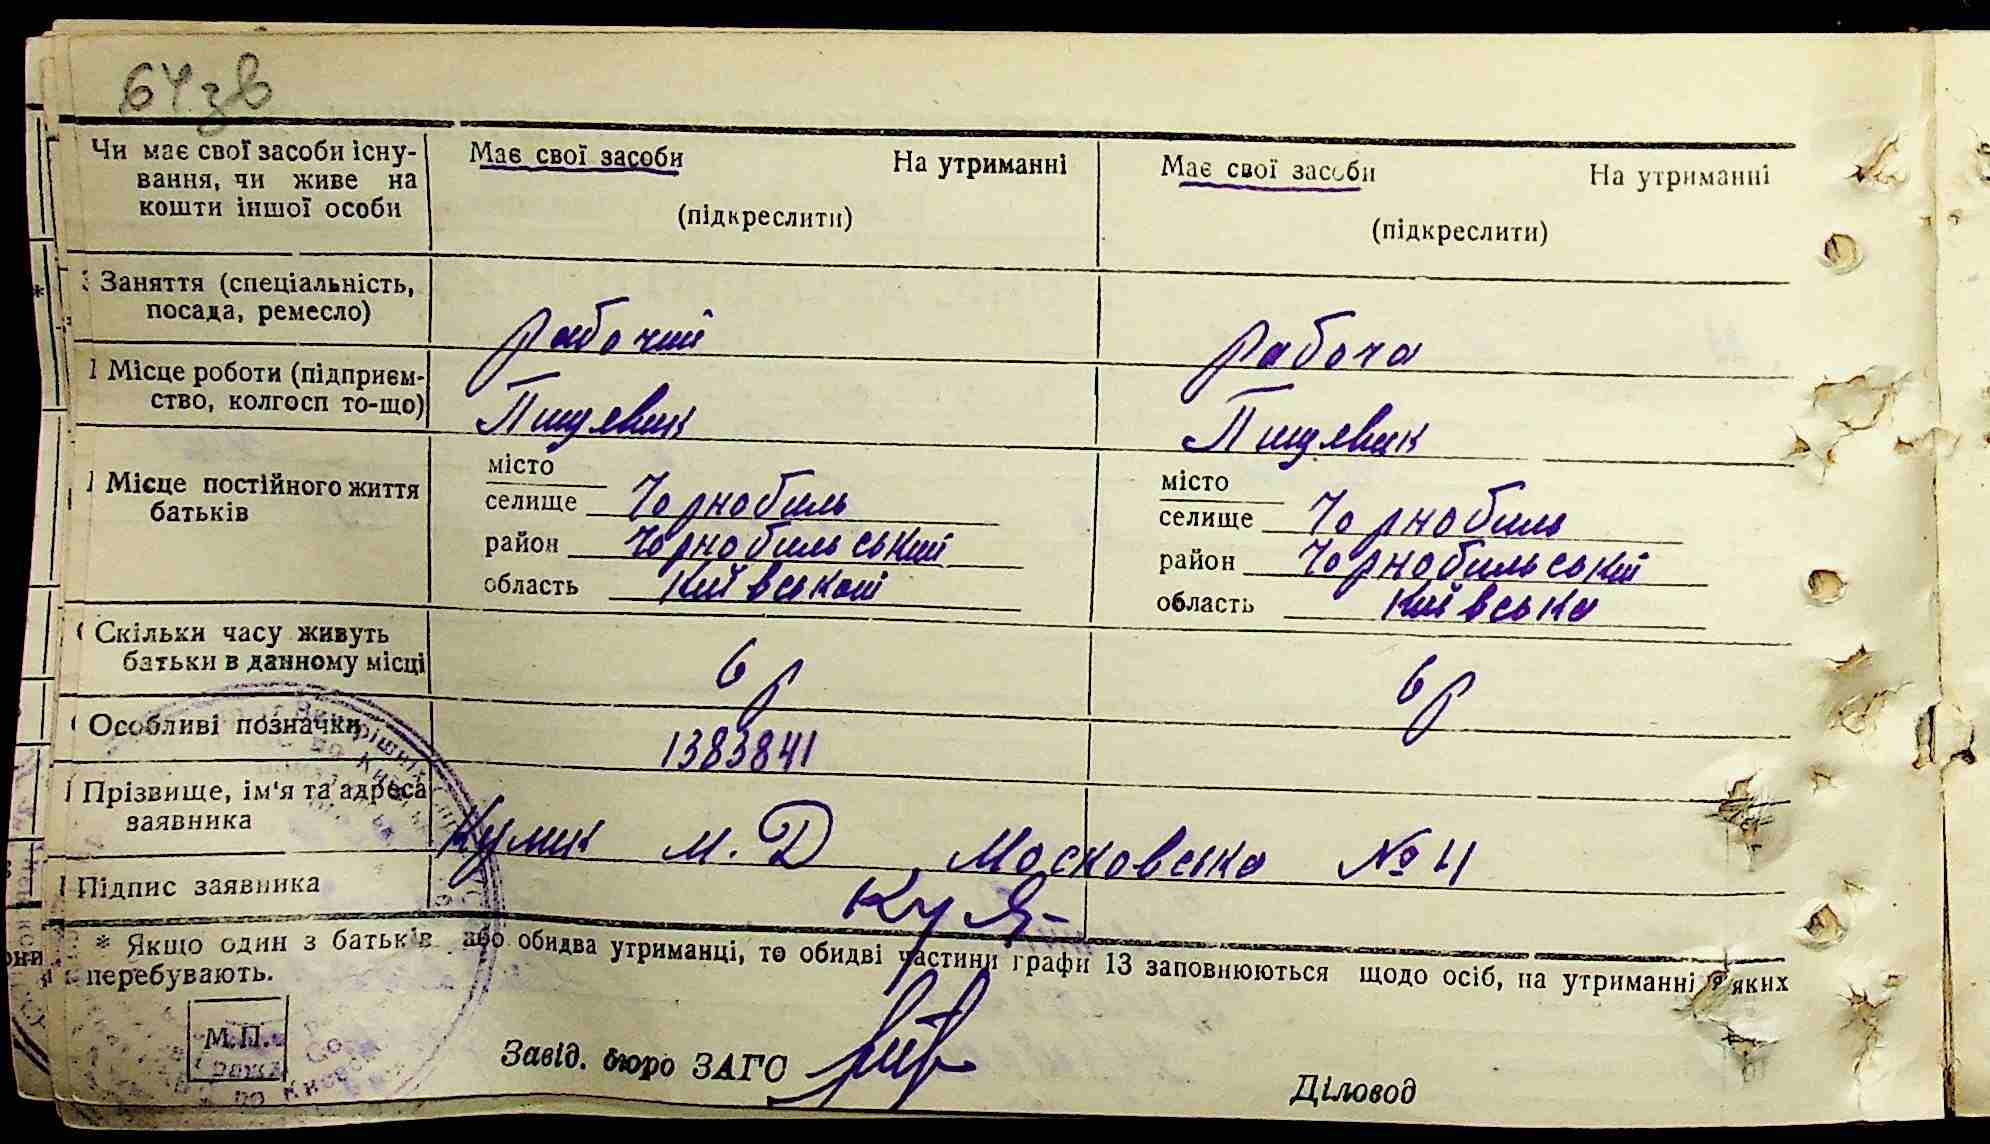 64зв
Чи має свої засоби існу-
вання, чи живе на
кошти іншої особи
Має свої засоби На утриманні
(підкреслити)
Має свої засоби На утриманні
(підкреслити)
Заняття (спеціальність,
посада, ремесло)
рабочий
рабоча
Місце роботи (підприєм-
ство, колгосп то-що)
Пищевик
Пищевик
Місце постійного життя
батьків
місто
селище Чорнобиль
район Чорнобильський
область Київської
місто
селище Чорнобиль
район Чорнобильський
область Київська
Скільки часу живуть
батьки в данному місці
6 р
6 р
Особливі позначки
1383841
Прізвище, ім'я та адреса
заявника
Кулик М. Д Московська № 4
Підпис заявника
* Якщо один з батьків або обидва утриманці, то обидві частини графи 13 заповнюються щодо осіб, на утриманні яких
перебувають.
М.П.
Завід. бюро ЗАГС
Діловод